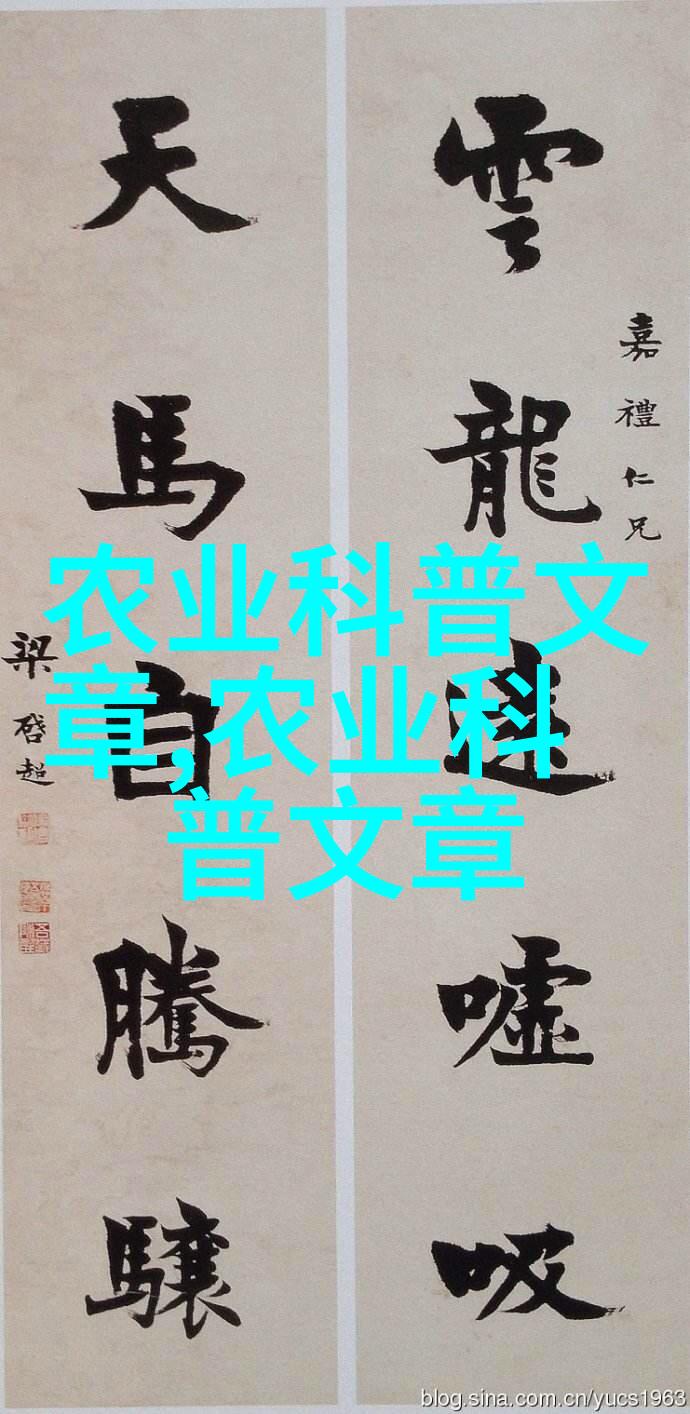 嘉禮仁兄
雲龍噓吸
天馬自騰驤
梁啓超
农业科普文
章,农业科
普文章
blog.sina.com.cn/yucs1963